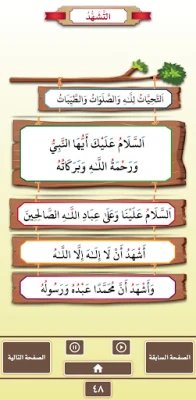 التَّشَهُّدُ
اَلتَّحِيَّاتُ لِلَّهِ وَالصَّلَوَاتُ وَالطَّيِّبَاتُ
اَلسَّلَامُ عَلَيْكَ أَيُّهَا النَّبِيُّ
وَرَحْمَةُ اللَّهِ وَبَرَكَاتُهُ
اَلسَّلَامُ عَلَيْنَا وَعَلَى عِبَادِ اللَّهِ الصَّالِحِينَ
أَشْهَدُ أَنْ لَا إِلَهَ إِلَّا اللَّهُ
وَأَشْهَدُ أَنَّ مُحَمَّدًا عَبْدُهُ وَرَسُولُهُ
الصفحة السابقة
الصفحة التالية
٤٨